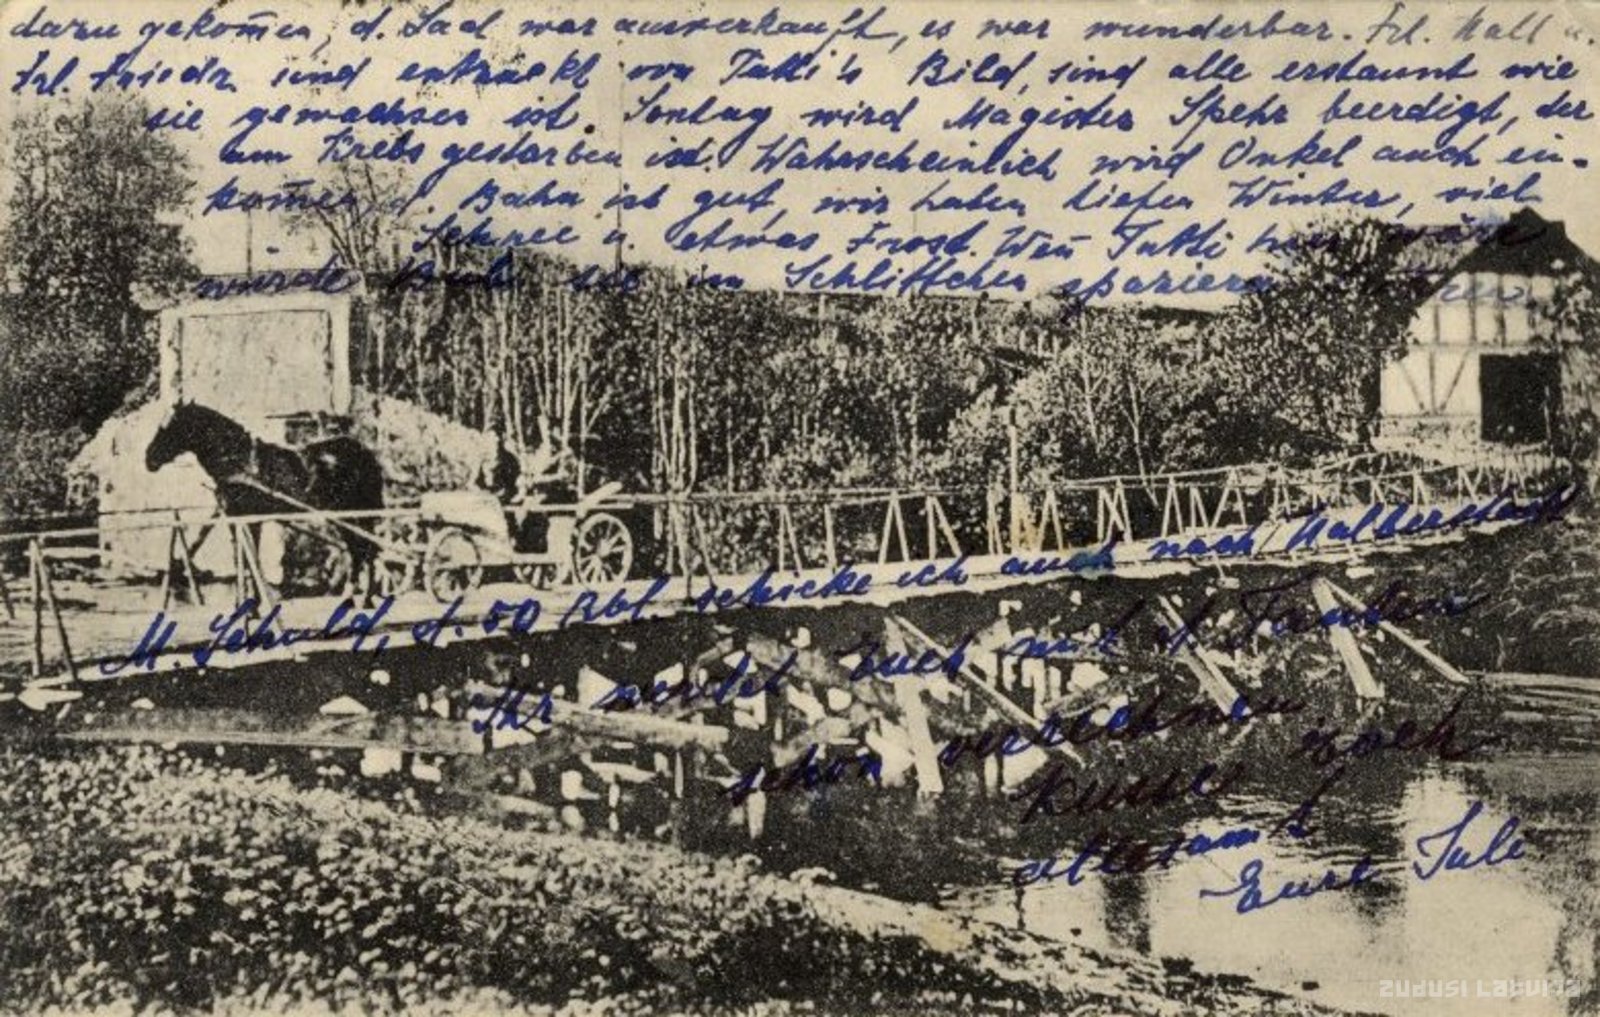 dazu gekom̄en, d. Saal war ausverkauft, es war wunderbar. Frl. Hall u.
Frl. Friedr. sind entzückt von Tutti's Bild, sind alle erstaunt wie
sie gewachsen ist. Sontag wird Magister Spehr beerdigt, der
am Krebs gestorben ist. Wahrscheinlich wird Onkel auch ein-
kom̄en, d. Bahn ist gut, wir haben tiefen Winter, viel
Schnee u. etwas Frost. Wen̄ Tutti hier wäre
würde Bubi sie im Schlittchen spazieren
M. Schuld, d. 50 Rbl. schicke ich auch nach Halberstadt
Ihr werdet Euch mit d. Tanten
schon verrechnen.
Küsse Euch
allesamt
Eure Juli
Zudusi Latvija